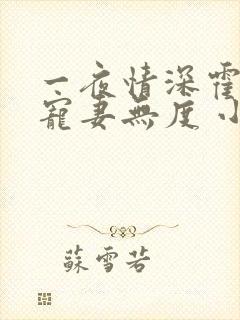 一夜情深霍
寵妻無度小
蘇雪若